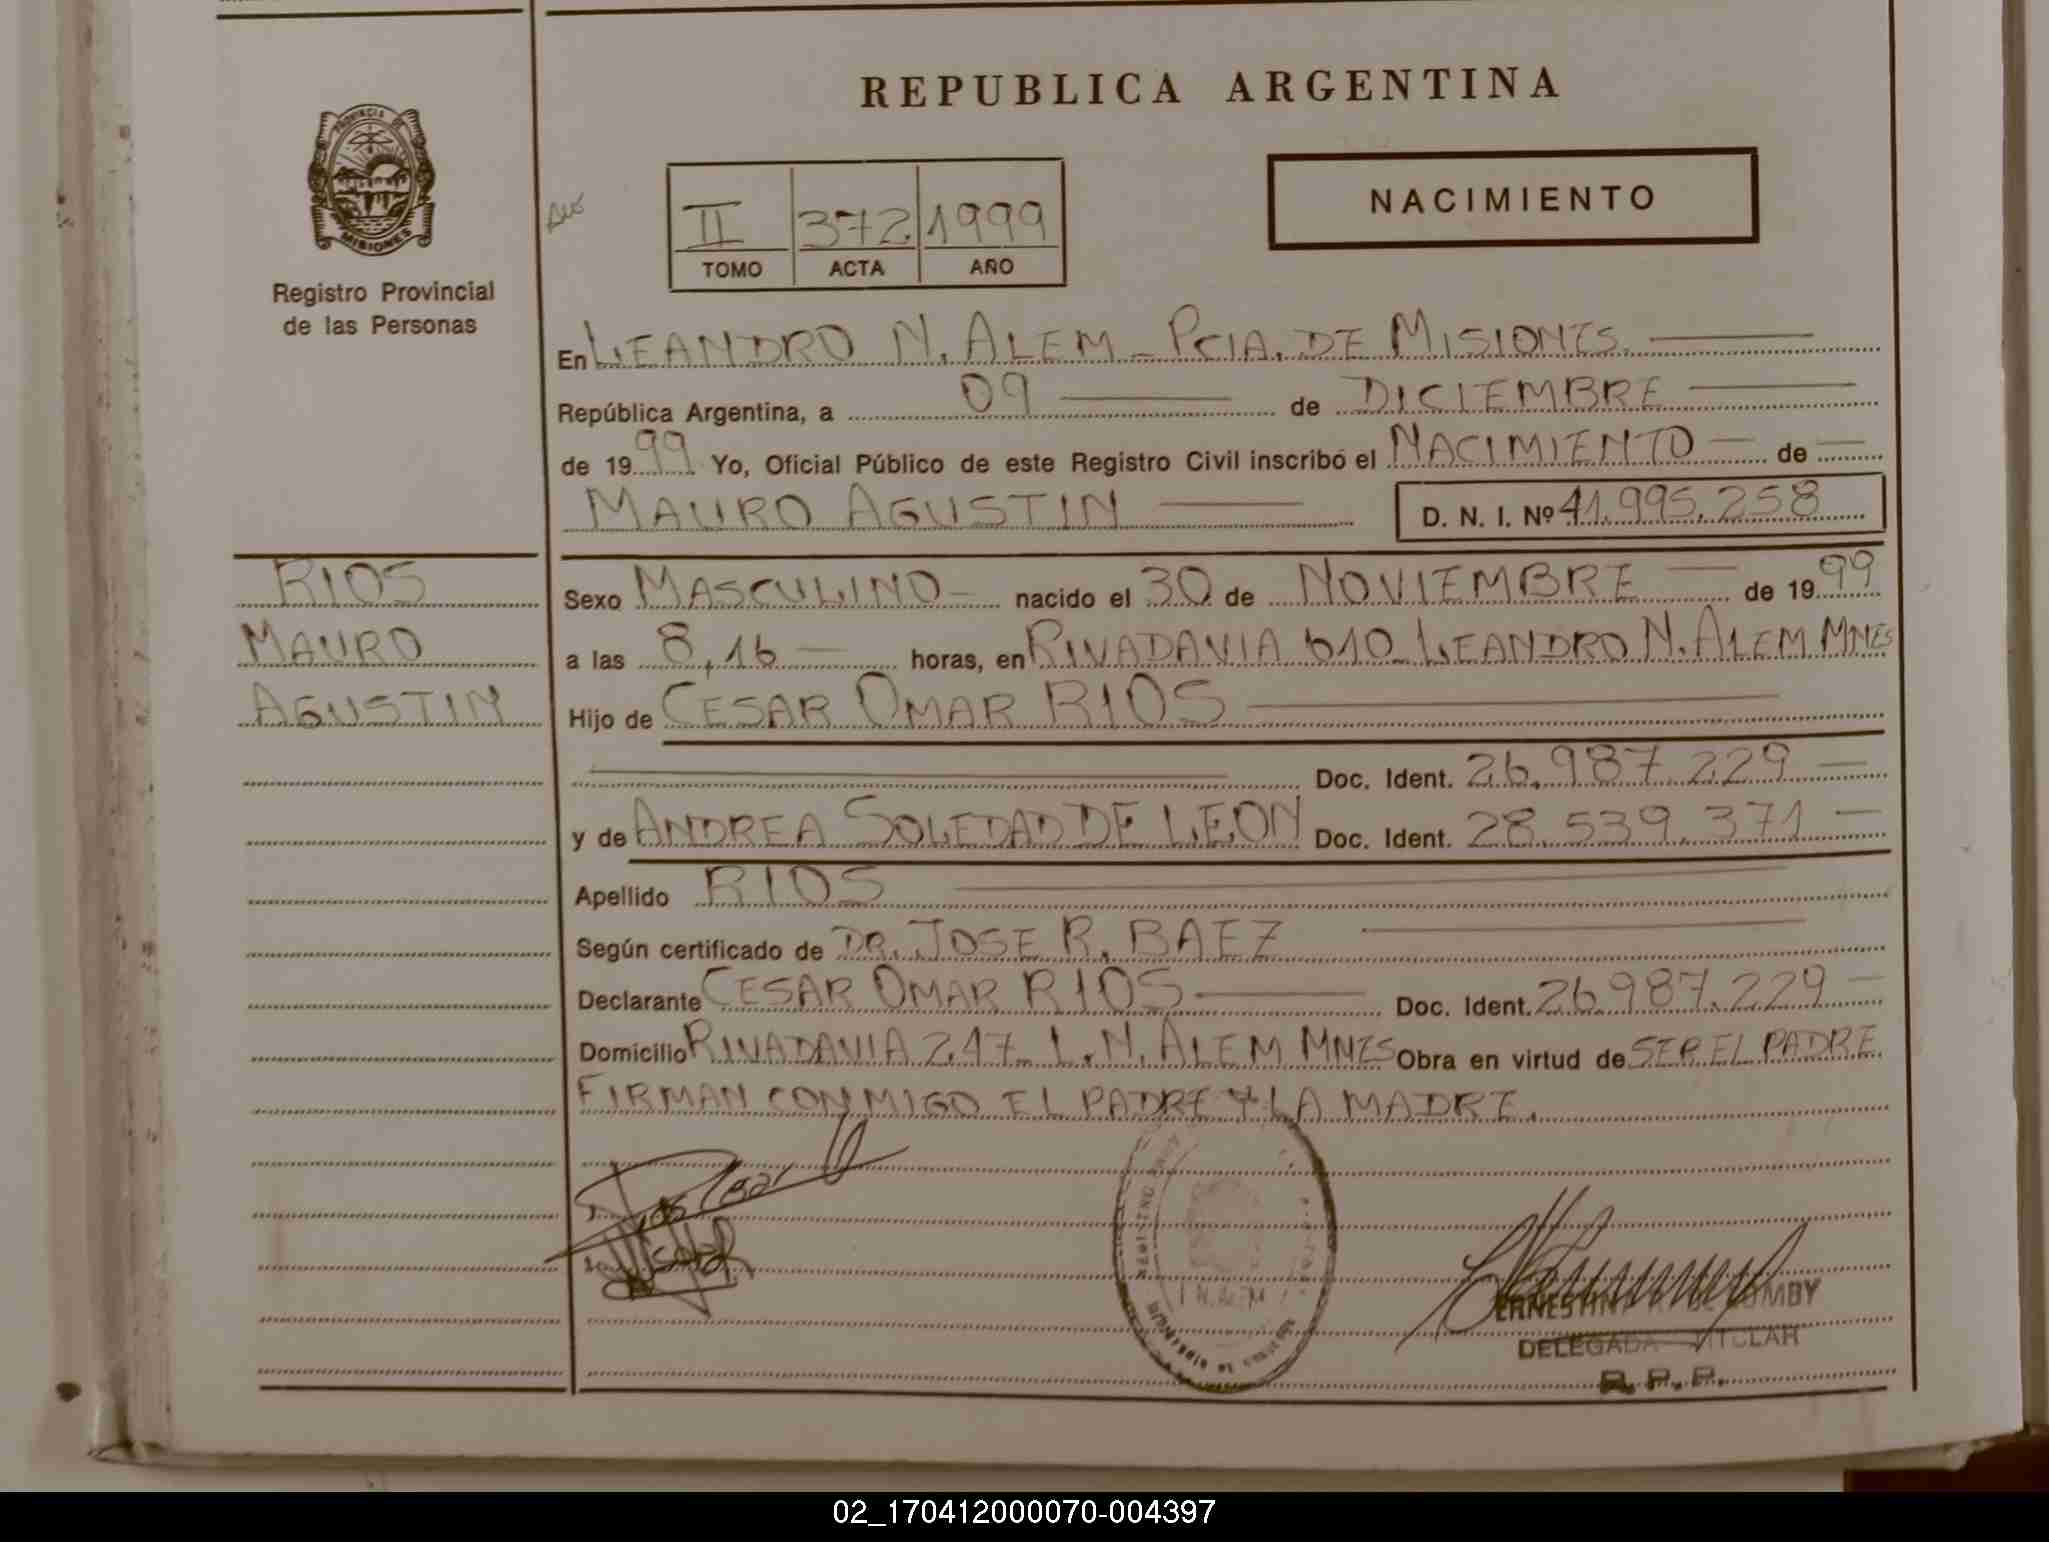 REPUBLICA ARGENTINA
PROVINCIA DE
MISIONES
Registro Provincial
de las Personas
NACIMIENTO
II 372 1999
TOMO ACTA AÑO
En LEANDRO N. ALEM - PCIA. DE MISIONES.
República Argentina, a 09 de DICIEMBRE
de 1999 Yo, Oficial Público de este Registro Civil inscribo el NACIMIENTO de
MAURO AGUSTIN D. N. I. Nº 41.995.258
RIOS
MAURO
AGUSTIN
Sexo MASCULINO - nacido el 30 de NOVIEMBRE de 1999
a las 8,16 horas, en RIVADAVIA 610 LEANDRO N. ALEM MNES
Hijo de CESAR OMAR RIOS
Doc. Ident. 26.987.229
y de ANDREA SOLEDAD DE LEON Doc. Ident. 28.539.371
Apellido RIOS
Según certificado de DR. JOSE R. BAEZ
Declarante CESAR OMAR RIOS Doc. Ident. 26.987.229
Domicilio RIVADAVIA 247 L. N. ALEM MNES Obra en virtud de SER EL PADRE
FIRMAN CONMIGO EL PADRE Y LA MADRE.
N. ALEM
DELEGADA TITULAR
R. P. P.
02_170412000070-004397